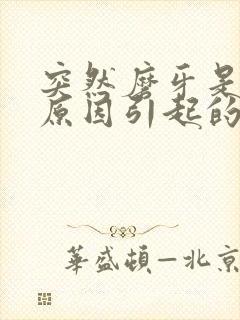 突然磨牙是
原因引起的
華盛頓—北京